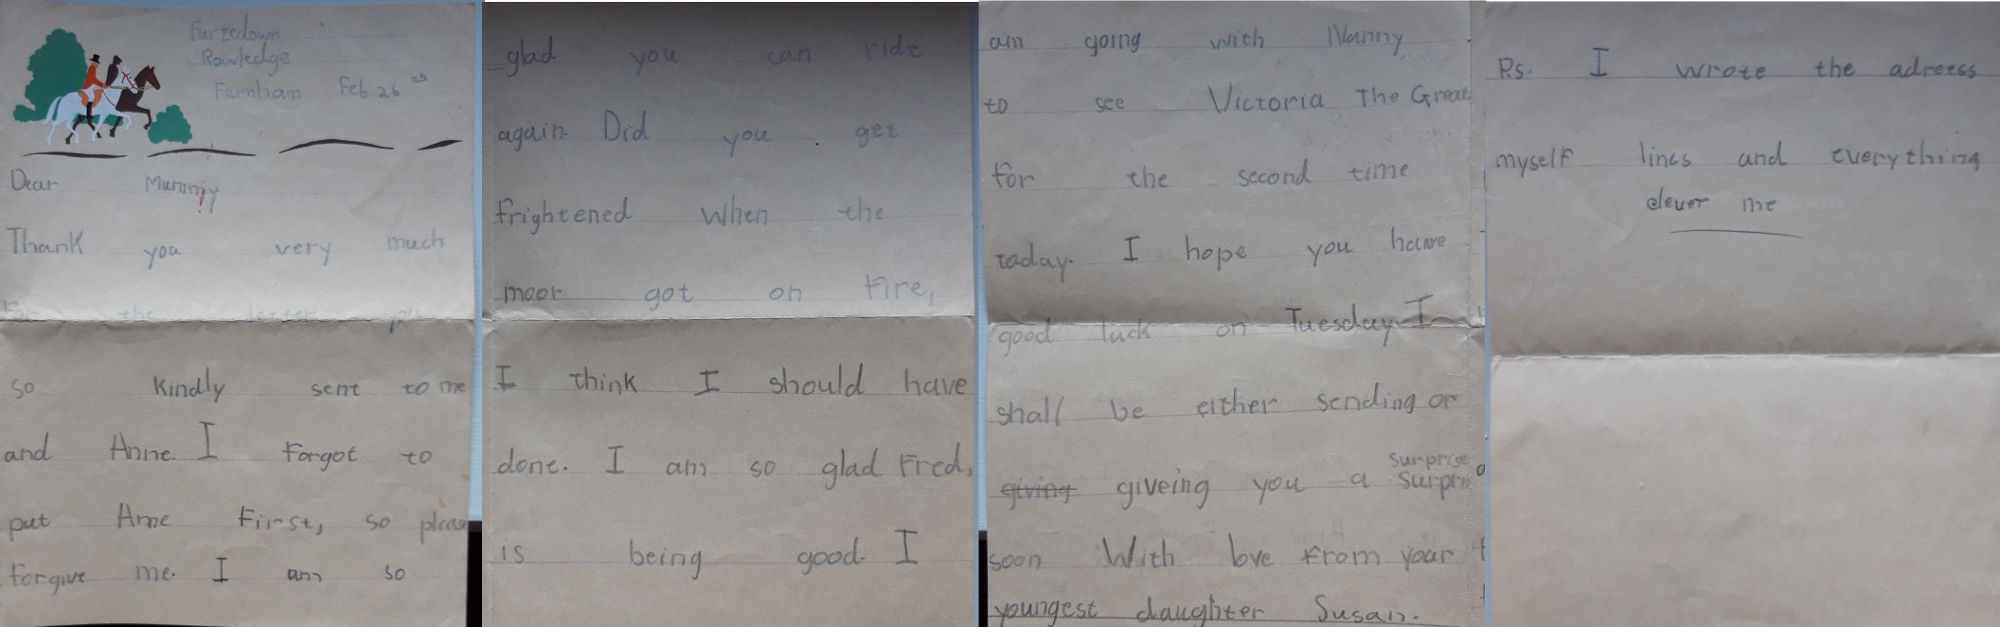 Furzedown
Rowledge
Farnham Feb 26th
Dear Mummy
Thank you very much
For the letter you
so kindly sent to me
and Anne. I forgot to
put Anne First, so please
forgive me. I am so
glad you can ride
again. Did you get
frightened when the
moor got on Fire,
I think I should have
done. I am so glad Fred,
is being good. I
am going with Nanny
to see Victoria The Great
for the second time
today. I hope you have
good luck on Tuesday I
shall be either sending or
giving giveing you a surprise
soon With love From your
youngest daughter Susan.
Ps. I wrote the adreess
myself lines and everything
clever me